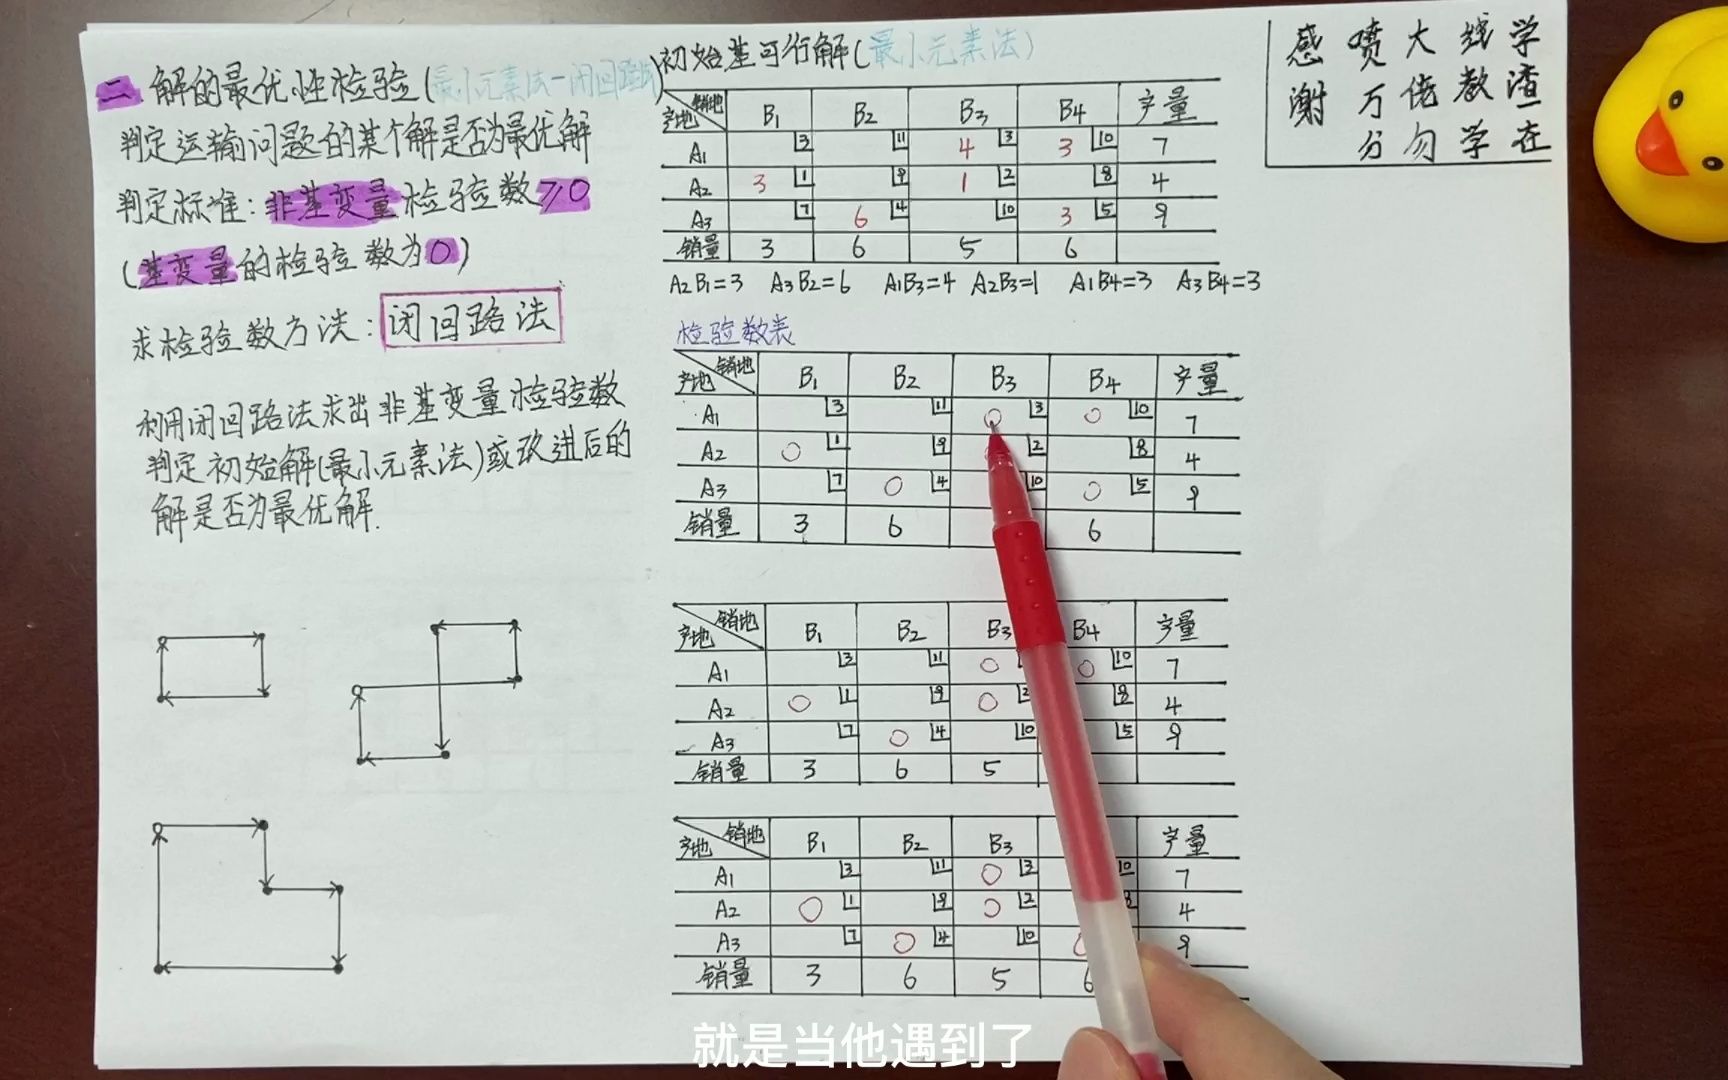 二. 解的最优性检验(最小元素法-闭回路法)
判定运输问题的某个解是否为最优解
判定标准:非基变量检验数≥0
(基变量的检验数为0)
求检验数方法:闭回路法
利用闭回路法求出非基变量检验数
判定初始解(最小元素法)或改进后的
解是否为最优解.
初始基可行解(最小元素法)
销地 产地 B1 B2 B3 B4 产量
A1 3 11 4 3 3 10 7
A2 3 1 9 1 2 8 4
A3 7 6 4 10 3 5 9
销量 3 6 5 6
A2B1=3 A3B2=6 A1B3=4 A2B3=1 A1B4=3 A3B4=3
检验数表
销地 产地 B1 B2 B3 B4 产量
A1 3 11 0 3 0 10 7
A2 0 1 9 2 8 4
A3 7 0 4 10 0 5 9
销量 3 6 6
销地 产地 B1 B2 B3 B4 产量
A1 3 11 0 0 10 7
A2 0 1 9 0 2 8 4
A3 7 0 4 10 5 9
销量 3 6 5
销地 产地 B1 B2 B3 产量
A1 3 11 0 3 10 7
A2 0 1 9 0 2 4
A3 7 0 4 10 9
销量 3 6 5 6
学渣在
线教学
大佬勿
喷万分
感谢
就是当他遇到了